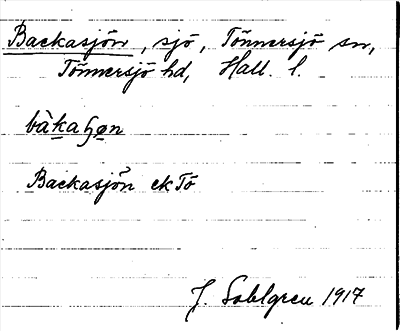 Backasjön, sjö, Tönnersjö sn,
Tönnersjö hd, Hall. l.
bàkaꞕøn
Backasjön ekTö
J. Sahlgren 1917